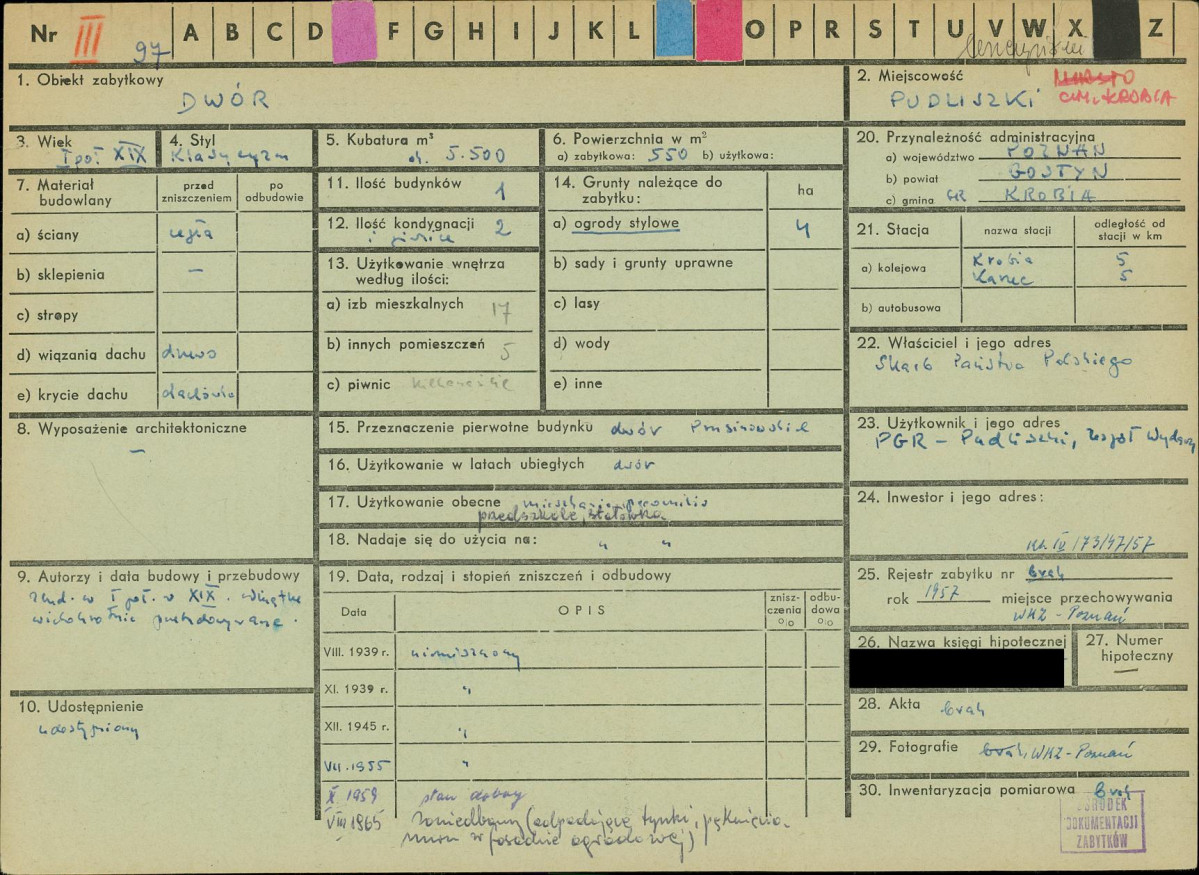 Nr III 97 A B C D F G H I J K L O P R S T U V W X Z
1. Obiekt zabytkowy
DWÓR
2. Miejscowość
MIASTO
PUDLISZKI GM. KROBIA
3. Wiek
I poł XIX
4. Styl
Klasycyzm
5. Kubatura m³
ok. 5.500
6. Powierzchnia w m²
a) zabytkowa: 550 b) użytkowa:
20. Przynależność administracyjna
a) województwo POZNAŃ
b) powiat GOSTYŃ
c) gmina GR KROBIA
7. Materiał budowlany
przed zniszczeniem
po odbudowie
a) ściany cegła
b) sklepienia —
c) stropy
d) wiązania dachu drewno
e) krycie dachu dachówka
11. Ilość budynków 1
12. Ilość kondygnacji 2
i piwnice
13. Użytkowanie wnętrza
według ilości:
a) izb mieszkalnych 17
b) innych pomieszczeń 5
c) piwnic kilkanaście
14. Grunty należące do
zabytku:
ha
a) ogrody stylowe 4
b) sady i grunty uprawne
c) lasy
d) wody
e) inne
21. Stacja
nazwa stacji
odległość od
stacji w km
a) kolejowa Krobia 5
Karzec 5
b) autobusowa
22. Właściciel i jego adres
Skarb Państwa Polskiego
8. Wyposażenie architektoniczne
—
15. Przeznaczenie pierwotne budynku dwór
16. Użytkowanie w latach ubiegłych dwór
17. Użytkowanie obecne
przedszkole, stołówka
18. Nadaje się do użycia na: " "
23. Użytkownik i jego adres
PGR – Pudliszki,
24. Inwestor i jego adres:
IV/73/47/57
25. Rejestr zabytku nr brak
rok 1957 miejsce przechowywania
WKZ – Poznań
9. Autorzy i data budowy i przebudowy
zbud. w I poł. w XIX.
wielokrotnie przebudowywane.
19. Data, rodzaj i stopień zniszczeń i odbudowy
Data
OPIS
znisz-
czenia
%
odbu-
dowa
%
VIII. 1939 r. niezniszczony
XI. 1939 r. "
XII. 1945 r. "
VII. 1955 "
X 1959 stan dobry
VIII 1965 zaniedbany (odpadające tynki, pęknięcia
muru w fasadzie ogrodowej)
10. Udostępnienie
udostępniony
26. Nazwa księgi hipotecznej
27. Numer
hipoteczny
—
28. Akta brak
29. Fotografie brak, WKZ – Poznań
30. Inwentaryzacja pomiarowa brak
OŚRODEK
DOKUMENTACJI
ZABYTKÓW